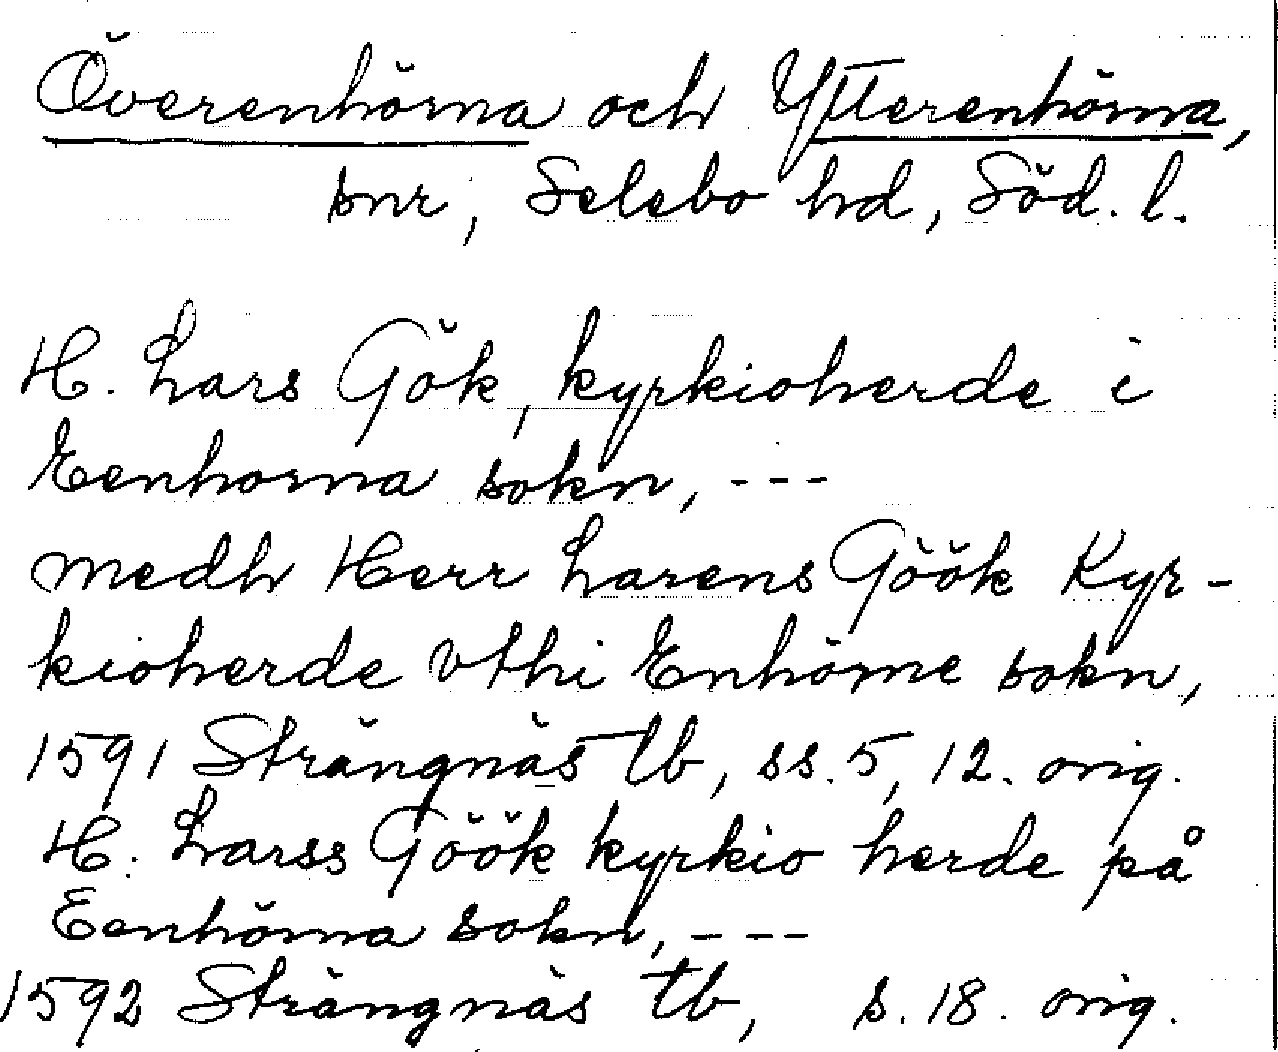 Överenhörna och Ytterenhörna,
snr, Selebo hd, Söd. l.
H. Lars Gök, kyrkioherde i
Eenhorna sokn, ---
medh Herr Larens Göök Kyr-
kioherde vthi Enhörne sokn,
1591 Strängnäs tb, ss. 5, 12. orig.
H. Larss Göök kyrkio herde på
Eenhörna sokn, ---
1592 Strängnäs tb, s. 18. orig.